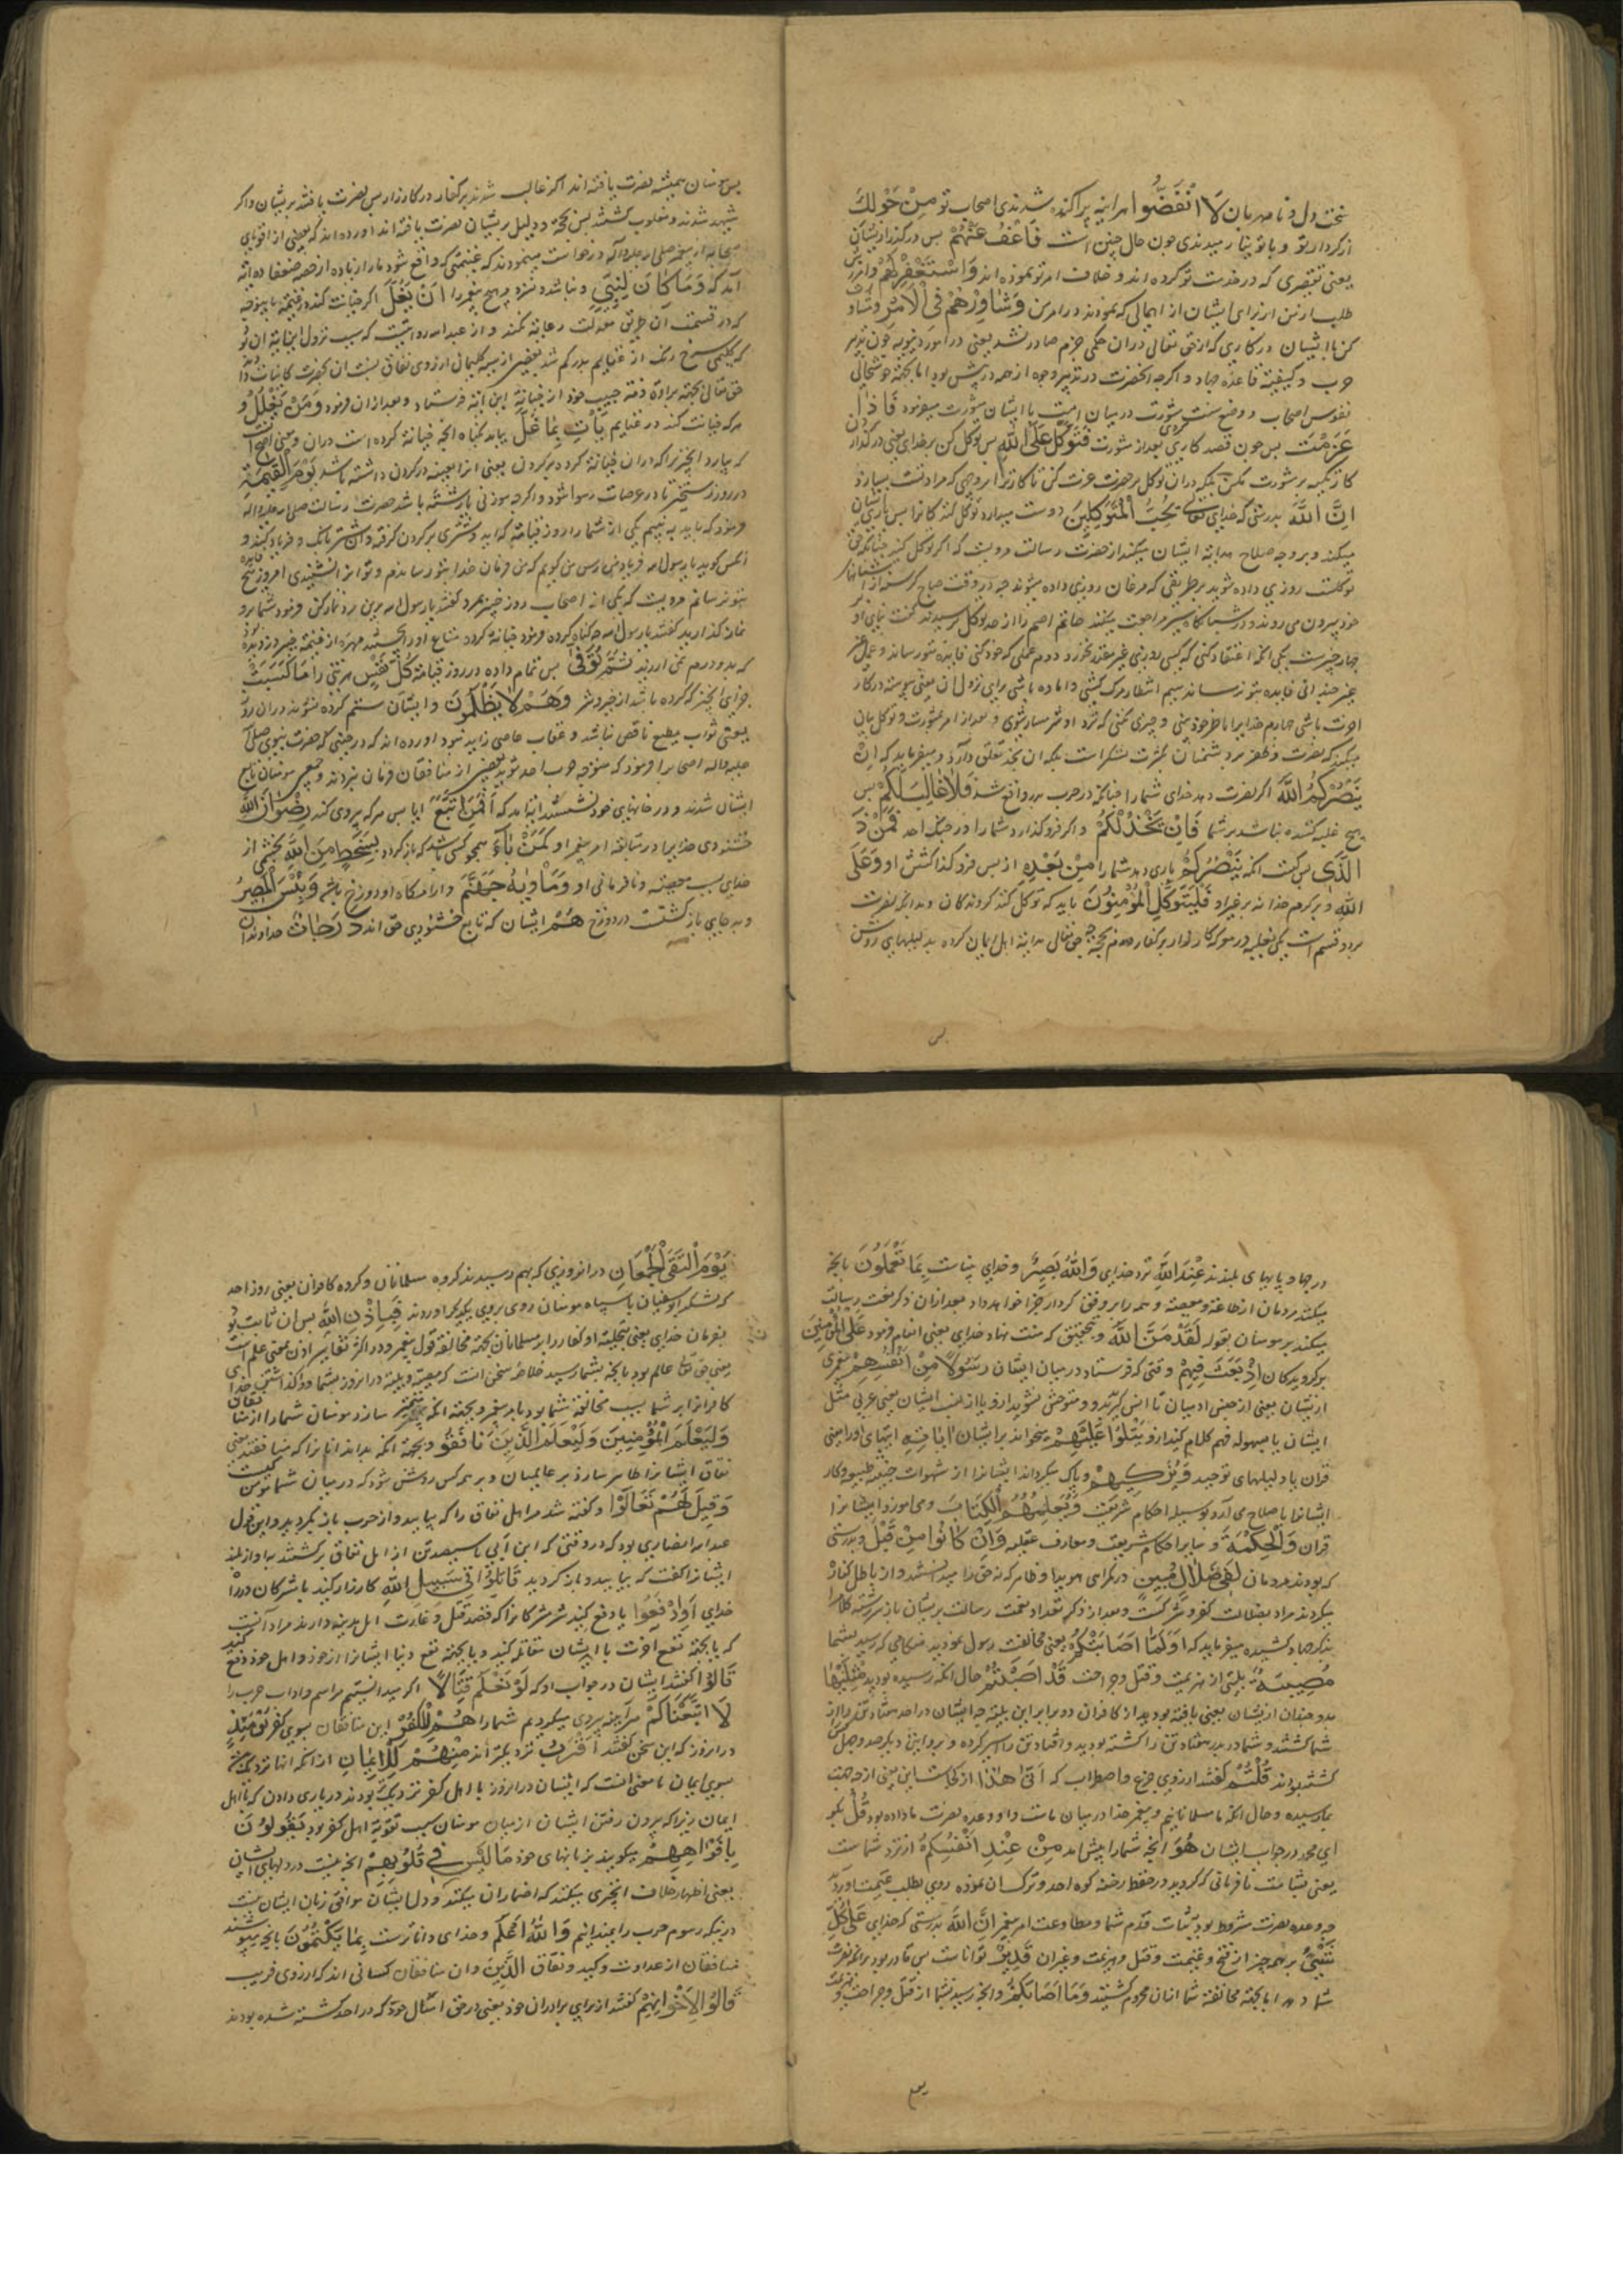 سخت دل و نامهربان لَا انْفَضُّوا هراینه پراکنده شدندی اصحاب تو مِنْ حَوْلِكَ
از کرد تو و با تو نیارمیدندی چون حال چنین است فَاعْفُ عَنْهُمْ پس درگذر از ایشان
یعنی تقصیری که در خدمت تو کرده اند و خلاف امر تو نموده اند وَاسْتَغْفِرْ لَهُمْ
طلب از من از برای ایشان از اهمالی که نمودند در امر من وَشَاوِرْهُمْ فِی الْاَمْرِ و مشاورت
کن با ایشان در کاری که از حق تعالی در آن حکمی جزم صادر نشد یعنی در امور دنیویه چون تدبیر
حرب و کیفیت قاعده جهاد و اگرچه آنحضرت در تدبیر وجوه از همه در پیش بود اما بجهت خوشحالی
نفوس اصحاب و وضع سنت مشورت در میان امت با ایشان مشورت میفرمود فَاِذَا
عَزَمْتَ پس چون قصد کاری کردی بعد از مشورت فَتَوَكَّلْ عَلَی اللهِ پس توکل کن بر خدای یعنی در گذار
کار تکیه بر مشورت مکن بلکه در آن توکل بر حضرت عزت کن تا کار ترا بر وجهی که مراد تست بسازد
اِنَّ اللهَ بدرستی که خدای تعالی یُحِبُّ الْمُتَوَكِّلِینَ دوست میدارد توکل کنندگان را پس یاری ایشان
میکند و بر وجه صلاح هدایت ایشان میکند از حضرت رسالت مرویست که اگر توکل کنید چنانکه حق
توکلست روزی داده شوید بر طریقی که مرغان روزی داده میشوند چه در وقت صباح گرسنه از آشیانها
خود بیرون می روند و در شبانگاه سیر مراجعت میکنند حاتم اصم را از حد توکل پرسیدند گفت بنای او
چهار چیزست یکی انکه اعتقاد کنی که کسی روزی غیر مقدر نخورد دوم عملی که خود کنی فایده بتو رساند و عمل
غیر چندانی فایده بتو نرساند سیم انتظار مرگ کشی و اماده باشی برای نزول ان یعنی پیوسته در کار
اخرت باشی چهارم خدایرا حاضر خود بینی و چیزی نکنی که نزد او شرمسار شوی و بعد از امر بمشورت و توکل بیان
میکند که نصرت و ظفر بر دشمنان نه بکثرت لشکر است بلکه ان بخدا تعلق دارد و میفرماید که اِنْ
یَنْصُرْكُمُ اللهُ اگر نصرت دهد خدای شمارا چنانکه در حرب بدر واقع شد فَلَا غَالِبَ لَكُمْ پس
هیچ غلبه کننده نباشد بر شما فَاِنْ یَخْذُلْكُمْ واگر فرو گذارد شمارا در جنگ احد فَمَنْ ذَا
الَّذِی پس کیست انکه یَنْصُرُكُمْ یاری دهد شمارا مِنْ بَعْدِهِ از پس فرو گذاشتن او وَعَلَی
اللهِ و بر کرم خدا نه بر غیر او فَلْیَتَوَكَّلِ الْمُؤْمِنُونَ باید که توکل کنند گروندگان و بدانکه نصرت
بر دو قسم است یکی بغلبه در معرکه کارزار بر کفار دوم بحجت چه حق تعالی هدایت اهل ایمان کرده بدلیلهای روشن
پس
پس مومنان همیشه نصرت یافته اند اگر غالب شدند بر کفار در کارزار پس نصرت یافتند بر ایشان واگر
شهید شدند و مغلوب گشتند پس بحجت و دلیل بر ایشان نصرت یافته اند اورده اند که بعضی از اقویای
صحابه از پیغمبر صلی الله علیه و آله درخواست مینمودند که غنیمتی که واقع شود مارا زیاده از حصه ضعفا ده
آمد که وَمَا كَانَ لِنَبِیٍّ و نباشد و نسزد هیچ پیغمبر را اَنْ یَغُلَّ اگر خیانت کند در غنیمت باینوجه
که در قسمت آن طریق معدلت رعایت نکند و از عبدالله روایتست که سبب نزول این ایت ان بود
که گلیمی سرخ رنگ از غنایم بدر گم شد بعضی از
حق تعالی بجهت براءت ذمه حبیب خود از خیانت این ایت فرستاد و بعد از ان فرمود وَمَنْ یَغْلُلْ و
هر که خیانت کند در غنایم یَأْتِ بِمَا غَلَّ بیاید بگناه انچه خیانت کرده است در ان
که بیارد انچیز را که در ان خیانت کرده بر گردن یعنی انرا بعینه در گردن داشته باشد یَوْمَ الْقِیٰمَةِ
در روز رستخیز تا در عرصات رسوا شود واگرچه سوزنی یا رشته باشد حضرت رسالت صلی الله علیه واله
فرمود که
انکس گوید یا رسول الله فریاد من برس من گویم که من فرمان خدا بتو رساندم و تو انرا نشنیدی امروز هیچ فایده
بتو نرسانم مرویست که یکی از اصحاب روز خیبر بمرد گفتند یا رسول الله برین مرد نماز کن فرمود شما برو
نماز گذارید گفتند یا رسول الله چه گناه کرده فرمود خیانت کرده متاع او را
که بدو درم نمی ارزید ثُمَّ تُوَفَّی پس تمام داده در روز قیامت كُلُّ نَفْسٍ هر تنی را مَا كَسَبَتْ
جزای انچیز که کرده باشد از خیر و شر وَهُمْ لَا یُظْلَمُونَ و ایشان ستم کرده نشوند در ان روز
یعنی ثواب مطیع ناقص نباشد و عقاب عاصی زاید نبود اورده اند که در حینی که حضرت نبوی صلی الله
علیه واله اصحاب را فرمود که متوجه حرب احد شوید بعضی از منافقان فرمان نبردند و جمعی مومنان تابع
ایشان شدند و در خانهای خود نشستند ایت امد که اَفَمَنِ اتَّبَعَ ایا پس هر که پیروی کند رِضْوَانَ اللهِ
خشنودی خدایرا در متابعت امر پیغمبر او كَمَنْ بَآءَ همچو کسی باشد که باز گردد بِسَخَطٍ مِنَ اللهِ بخشمی از
خدای بسبب معصیت و نافرمانی او وَمَأْویٰهُ جَهَنَّمُ و ارامگاه او دوزخ باشد وَبِئْسَ الْمَصِیرُ
و بد جای باز گشتست در دوزخ هُمْ ایشان که تابع خشنودی حق اند دَرَجَاتٌ خداوندان
درجها و پایهای بلندند عِنْدَ اللهِ نزد خدای وَاللهُ بَصِیرٌ و خدای بیناست بِمَا تَعْمَلُونَ بانچه
میکنند مردمان از طاعت و معصیت و همه را بر وفق کردار جزا خواهد داد بعد از ان ذکر نعمت رسالت
میکند بر مومنان بقوله لَقَدْ مَنَّ اللهُ و بتحقیق که منت نهاد خدای یعنی انعام فرمود عَلَی الْمُؤْمِنِینَ
بر گرویدگان اِذْ بَعَثَ فِیهِمْ وقتی که فرستاد در میان ایشان رَسُولًا مِنْ اَنْفُسِهِمْ پیغمبری
از ایشان یعنی از جنس ادمیان تا انس گیرند و متوحش نشوند ازو یا از نسب ایشان یعنی عربی مثل
ایشان تا بسهوله فهم کلام کنند ازو یَتْلُوا عَلَیْهِمْ میخواند بر ایشان اٰیَاتِهِ ایتهای اورا یعنی
قران با دلیلهای توحید وَیُزَكِّیهِمْ و پاک میگرداند ایشانرا از شهوات خبیثه طبیعه و کار
ایشانرا باصلاح می آرد بوسیله احکام شریعت وَیُعَلِّمُهُمُ الْكِتَابَ و می اموزد ایشانرا
قران وَالْحِكْمَةَ و سایر احکام شریعت و معارف عقلیه وَاِنْ كَانُوا مِنْ قَبْلُ و بدرستی
که بودند مردمان لَفِی ضَلَالٍ مُبِینٍ در گمراهی هویدا و ظاهر که نه حق را میدانستند و از باطل کناره
میکردند مراد بضلالت کفر و شرکست و بعد از ذکر تعداد نعمت رسالت بر ایشان باز سر رشته کلام را
بذکر جهاد کشیده میفرماید که اَوَلَمَّا اَصَابَتْكُمْ یعنی مخالفت رسول نمودید هنگامی که رسید بشما
مُصِیبَةٌ بلیتی از هزیمت و قتل و جراحت قَدْ اَصَبْتُمْ حال انکه رسیده بودید مِثْلَیْهَا
بدو چندان از ایشان یعنی یافته بودید از کافران دو برابر این بلیت چه ایشان در احد هفتاد تن را از
شما کشتند و شما در بدر هفتاد تن را کشته بودید و هفتاد تن را اسیر کرده و
گشته بودند قُلْتُمْ گفتند از روی جزع و اضطراب که اَنّٰی هٰذَا از کجاست این یعنی از چه جهت
بما رسیده و حال انکه ما مسلمانیم و پیغمبر خدا در میان ماست و او وعده نصرت ما داده بود قُلْ بگو
ای محمد در جواب ایشان هُوَ انچه شمارا پیش امد مِنْ عِنْدِ اَنْفُسِكُمْ از نزد شماست
یعنی بشامت نافرمانی که کردید در حفظ رخنه کوه احد و ترک ان نموده روی بطلب غنیمت اوردید
چه وعده نصرت مشروط بود بثبات قدم شما و مطاوعت امر پیغمبر اِنَّ اللهَ بدرستی که خدای عَلٰی كُلِّ
شَیْءٍ بر همه چیز از فتح و غنیمت و قتل و هزیمت و غیر ان قَدِیرٌ تواناست پس قادر بود بر انکه نصرت
شما دهد اما بجهت مخالفت شما ازان محروم گشتید وَمَا اَصَابَكُمْ و انچه رسید بشما از قتل و جراحت و هزیمت
یوم
یَوْمَ الْتَقَی الْجَمْعَانِ در انروزی که بهم رسیدند گروه مسلمانان و گروه کافران یعنی روز احد
که لشکر ابو سفیان با سپاه مومنان روی بروی یکدیگر اوردند فَبِاِذْنِ اللهِ پس ان ثابت بود
بفرمان خدای یعنی بتخلیه او کفار را بر مسلمانان بجهت مخالفت قول پیغمبر و در اکثر تفاسیر اذن بمعنی علم است
یعنی حق تعالی عالم بود بانچه بشما رسید خلاصه سخن انست که مصیبت و بلیت در انروز بشما
کافران را بر شما بسبب مخالفت شما بود با امر پیغمبر و بجهت انکه متمیز سازد مومنان شمارا از
وَلِیَعْلَمَ الْمُؤْمِنِینَ وَلِیَعْلَمَ الَّذِینَ نَافَقُوا و بجهت انکه بداند انانرا که منافقند یعنی
نفاق ایشانرا ظاهر سازد بر عالمیان و بر همه کس روشن شود که در میان شما مومن کیست
وَقِیلَ لَهُمْ تَعَالَوْا و گفته شد مر اهل نفاق را که بیایید و از حرب باز نگردید و این قول
عبدالله انصاری بود که در وقتی که ابن ابی با سیصد تن از اهل نفاق برگشتند به اواز بلند
ایشانرا گفت که بیایید و باز گردید قَاتِلُوا فِی سَبِیلِ اللهِ کارزار کنید با مشرکان در راه
خدای اَوِادْفَعُوا یا دفع کنید شر مشرکانرا که قصد قتل و غارت اهل مدینه دارند مراد آنست
که یا بجهت نفع اخرت با ایشان مقاتله کنید و یا بجهت نفع دنیا ایشانرا از خود و اهل خود دفع کنید
قَالُوا گفتند ایشان در جواب او که لَوْ نَعْلَمُ قِتَالًا اگر میدانستیم مراسم و اداب حرب را
لَا اتَّبَعْنَاكُمْ هراینه پیروی میکردیم شمارا هُمْ لِلْكُفْرِ این منافقان بسوی کفر یَوْمَئِذٍ
در انروز که این سخن گفتند اَقْرَبُ نزدیکتر اند مِنْهُمْ لِلْاِیمَانِ از انکه انها نزدیک شوند
بسوی ایمان یا معنی انست که ایشان در انروز با اهل کفر نزدیکتر بودند در یاری دادن که با اهل
ایمان زیرا که بیرون رفتن ایشان از میان مومنان سبب تقویت اهل کفر بود یَقُولُونَ
بِاَفْوَاهِهِمْ میگویند بزبانهای خود مَا لَیْسَ فِی قُلُوبِهِمْ انچه نیست در دلهای ایشان
یعنی اظهار خلاف انچیزی میکنند که اضمار ان میکنند و دل ایشان موافق زبان ایشان نیست
در انکه رسوم حرب را نمیدانیم وَاللهُ اَعْلَمُ و خدای داناترست بِمَا یَكْتُمُونَ بانچه میپوشند
منافقان از عداوت و کید و نفاق الَّذِینَ و ان منافقان کسانی اند که از روی فریب
قَالُوا لِاِخْوَانِهِمْ گفتند از برای برادران خود یعنی در حق امثال خود که در احد کشته شده بودند